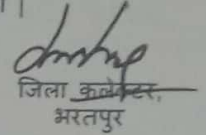 जिला कलेक्टर,
भरतपुर